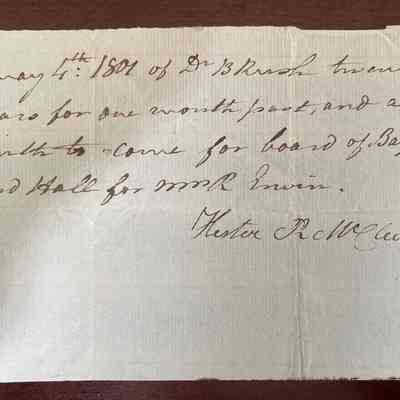 uary 4th: 1801 of Dr B Rush twen
ars for one month past, and a
nth to come for board of
nd Hall for Erwin.
Hester R Mc